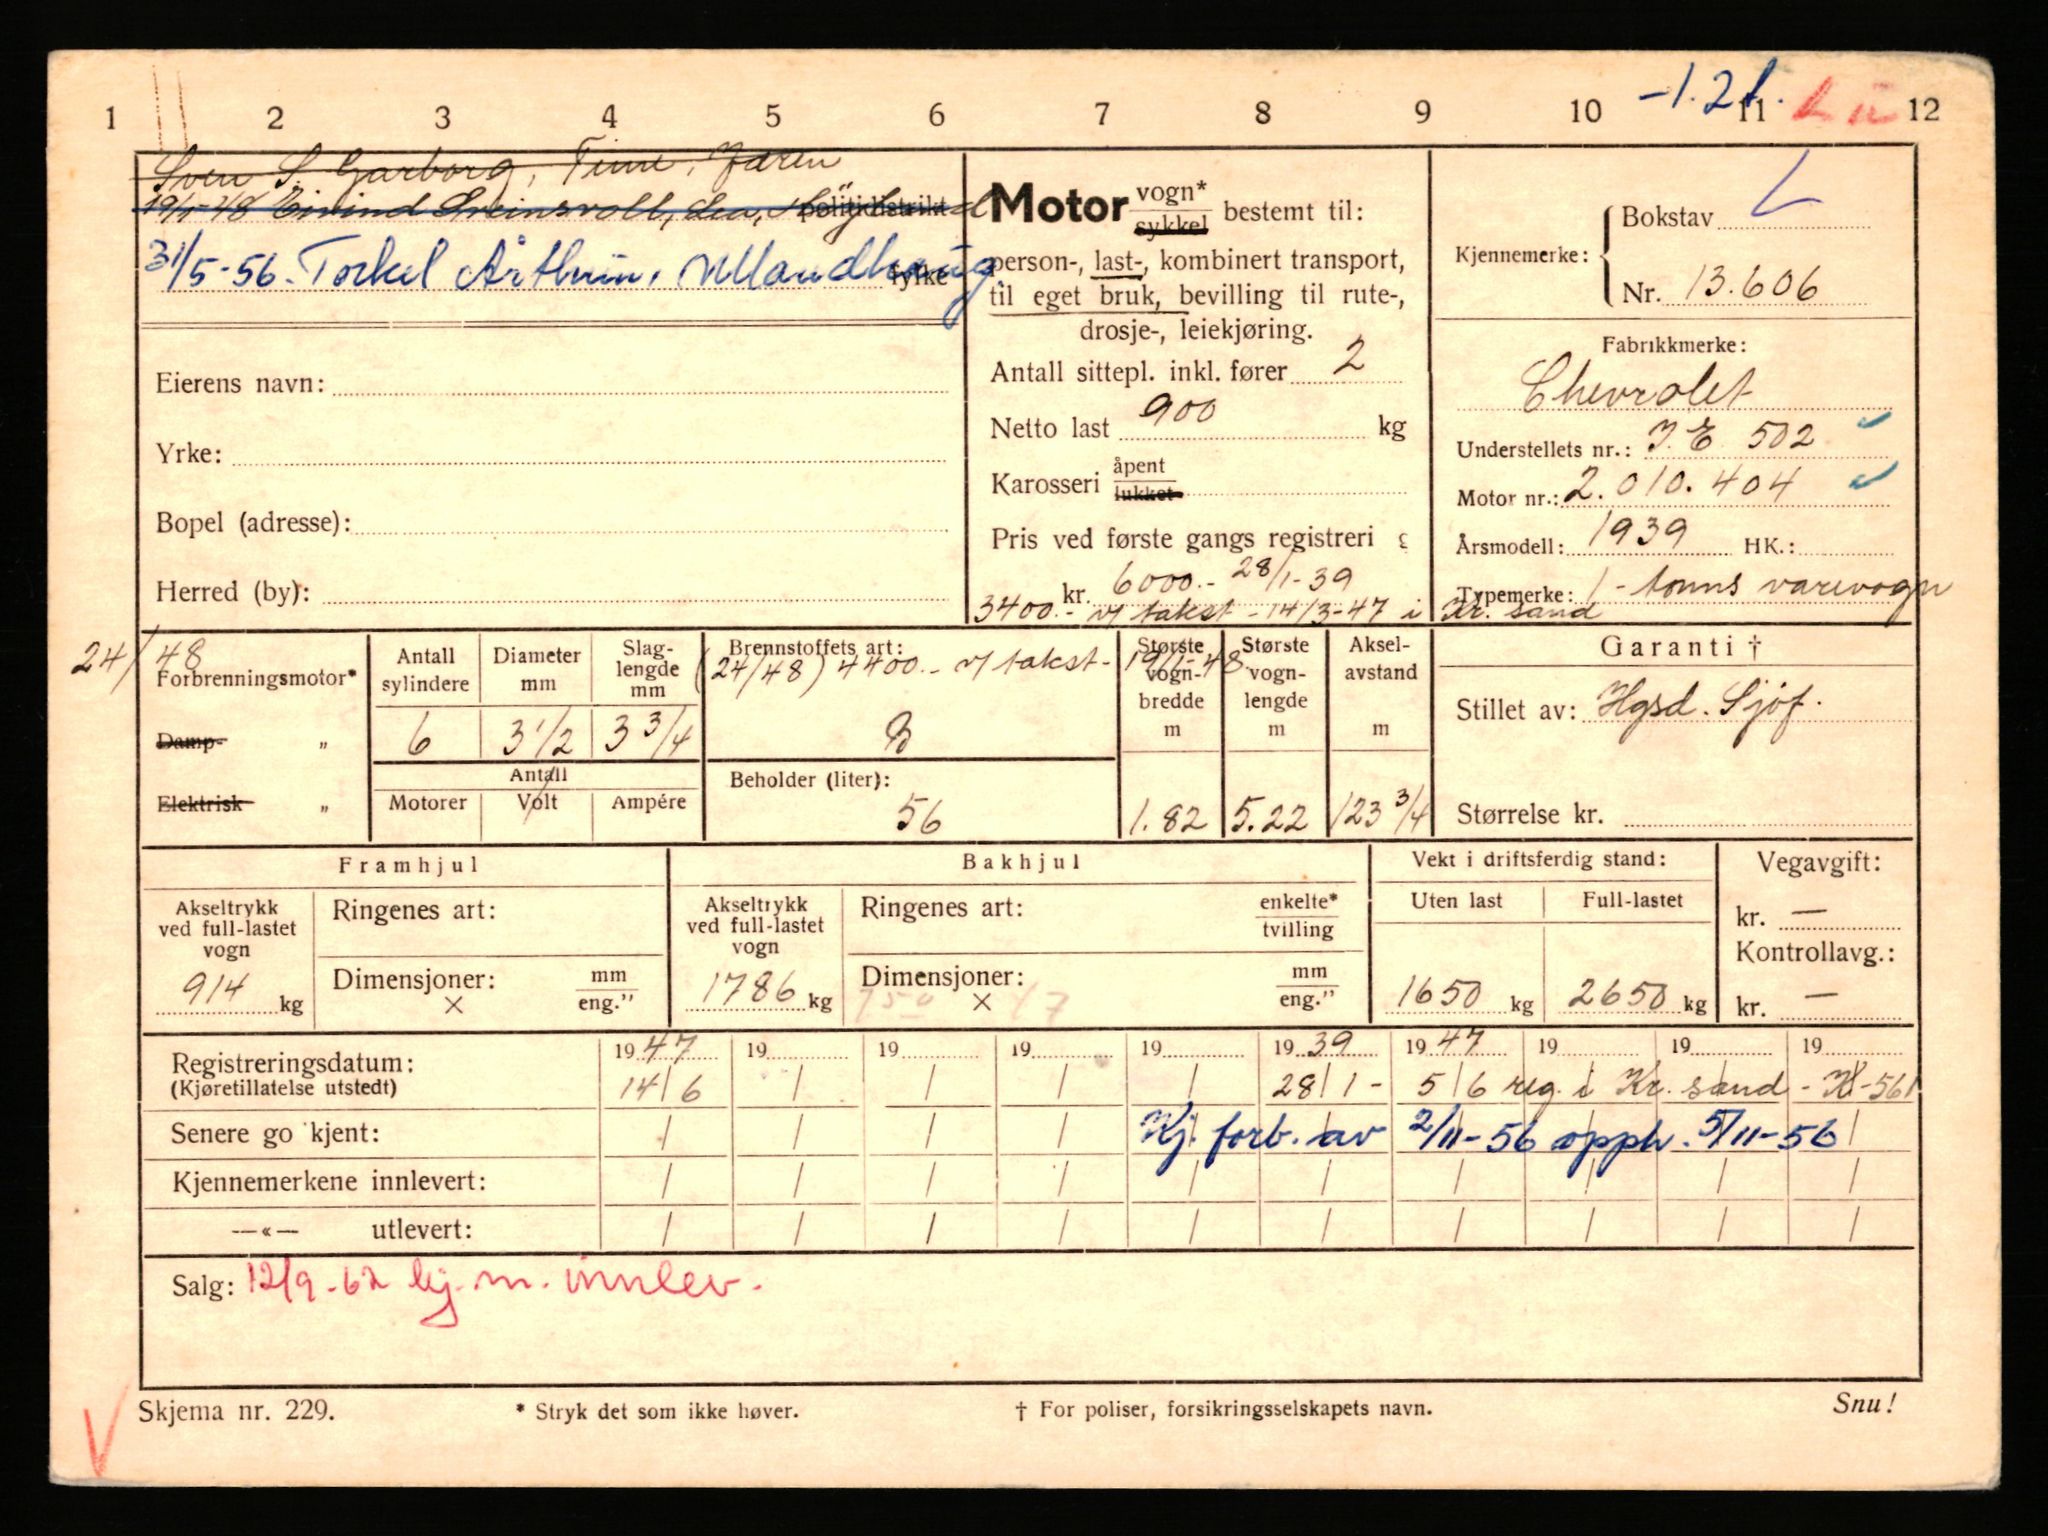 -1.2t. L
1 2 3 4 5 6 7 8 9 10 11 12
Sven S. Garborg, Time, Jæren
19/1-48 Eivind Sveinsvoll, politidistrikt
31/5-56. Torkel Årthun, Mandhaug. fylke
Eierens navn:
Yrke:
Bopel (adresse):
Herred (by):
Motor vogn* sykkel bestemt til:
person-, last-, kombinert transport,
til eget bruk, bevilling til rute-,
drosje-, leiekjøring.
Antall sittepl. inkl. fører 2
Netto last 900 kg
Karosseri åpent lukket
Pris ved første gangs registreri g
kr. 6000.- 28/1-39
3400.- v/ takst - 14/3-47 i Kr. sand
Kjennemerke: Bokstav L
Nr. 13.606
Fabrikkmerke:
Chevrolet
Understellets nr.: J.E. 502
Motor nr.: 2.010.404
Årsmodell: 1939 HK.:
Typemerke: 1 - tonns varevogn
24/ 48
Forbrenningsmotor*
Damp- „
Elektrisk „
Antall sylindere
6
Diameter mm
3 1/2
Slag-lengde mm
3 3/4
Antall
Motorer Volt Ampére
Brennstoffets art:
(24/48) 4400.- v/ takst - 19/1-48.
B
Beholder (liter):
56
Største vogn-bredde m
1.82
Største vogn-lengde m
5.22
Aksel-avstand m
123 3/4
Garanti †
Stillet av: Hgsd. Sjøf.
Størrelse kr.
Framhjul
Akseltrykk ved full-lastet vogn
914 kg
Ringenes art:
Dimensjoner: mm
× eng.”
Bakhjul
Akseltrykk ved full-lastet vogn
1786 kg
Ringenes art: enkelte* tvilling
Dimensjoner: mm
750 × 17 eng.”
Vekt i driftsferdig stand:
Uten last Full-lastet
1650 kg 2650 kg
Vegavgift:
kr. —
Kontrollavg.:
kr. —
Registreringsdatum: 1947 19 19 19 19 1939 1947 19 19 19
(Kjøretillatelse utstedt) 14/6 / / / / 28/1- 5/6 reg. i Kr. sand - K-561
Senere go kjent: / / / / Kj. forb. av 2/11-56 opph. 5/11-56 /
Kjennemerkene innlevert: / / / / / / / / / /
—«— utlevert: / / / / / / / / / /
Salg: 12/9-62 kj. m. innlev.
V
Skjema nr. 229. * Stryk det som ikke høver. † For poliser, forsikringsselskapets navn. Snu!